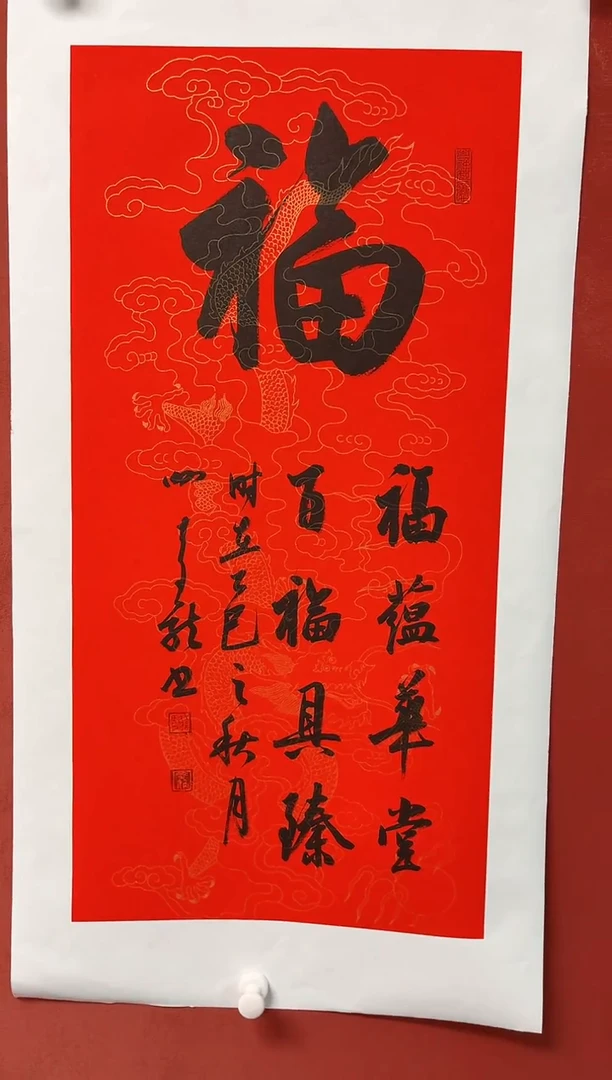 福
福蕴华堂
百福具臻
时在乙巳之秋月
龙书